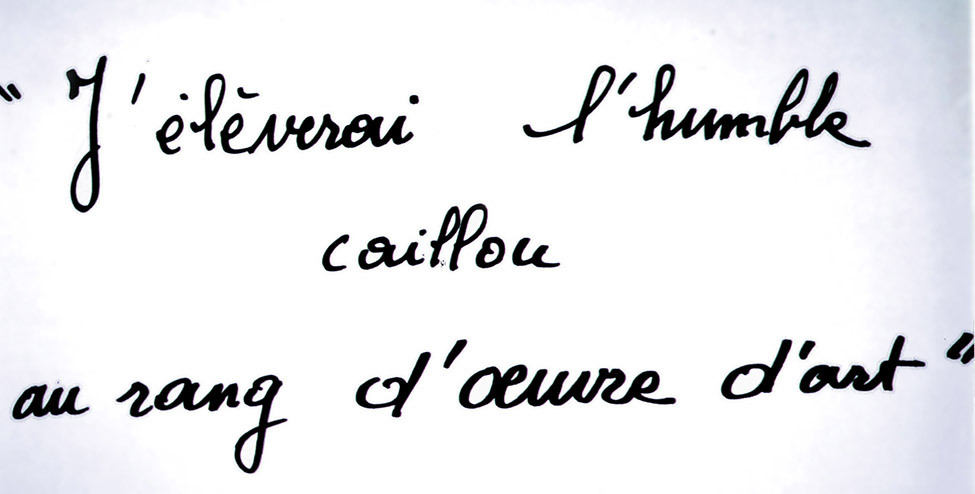 "J'élèverai l'humble
caillou
au rang d'œuvre d'art"